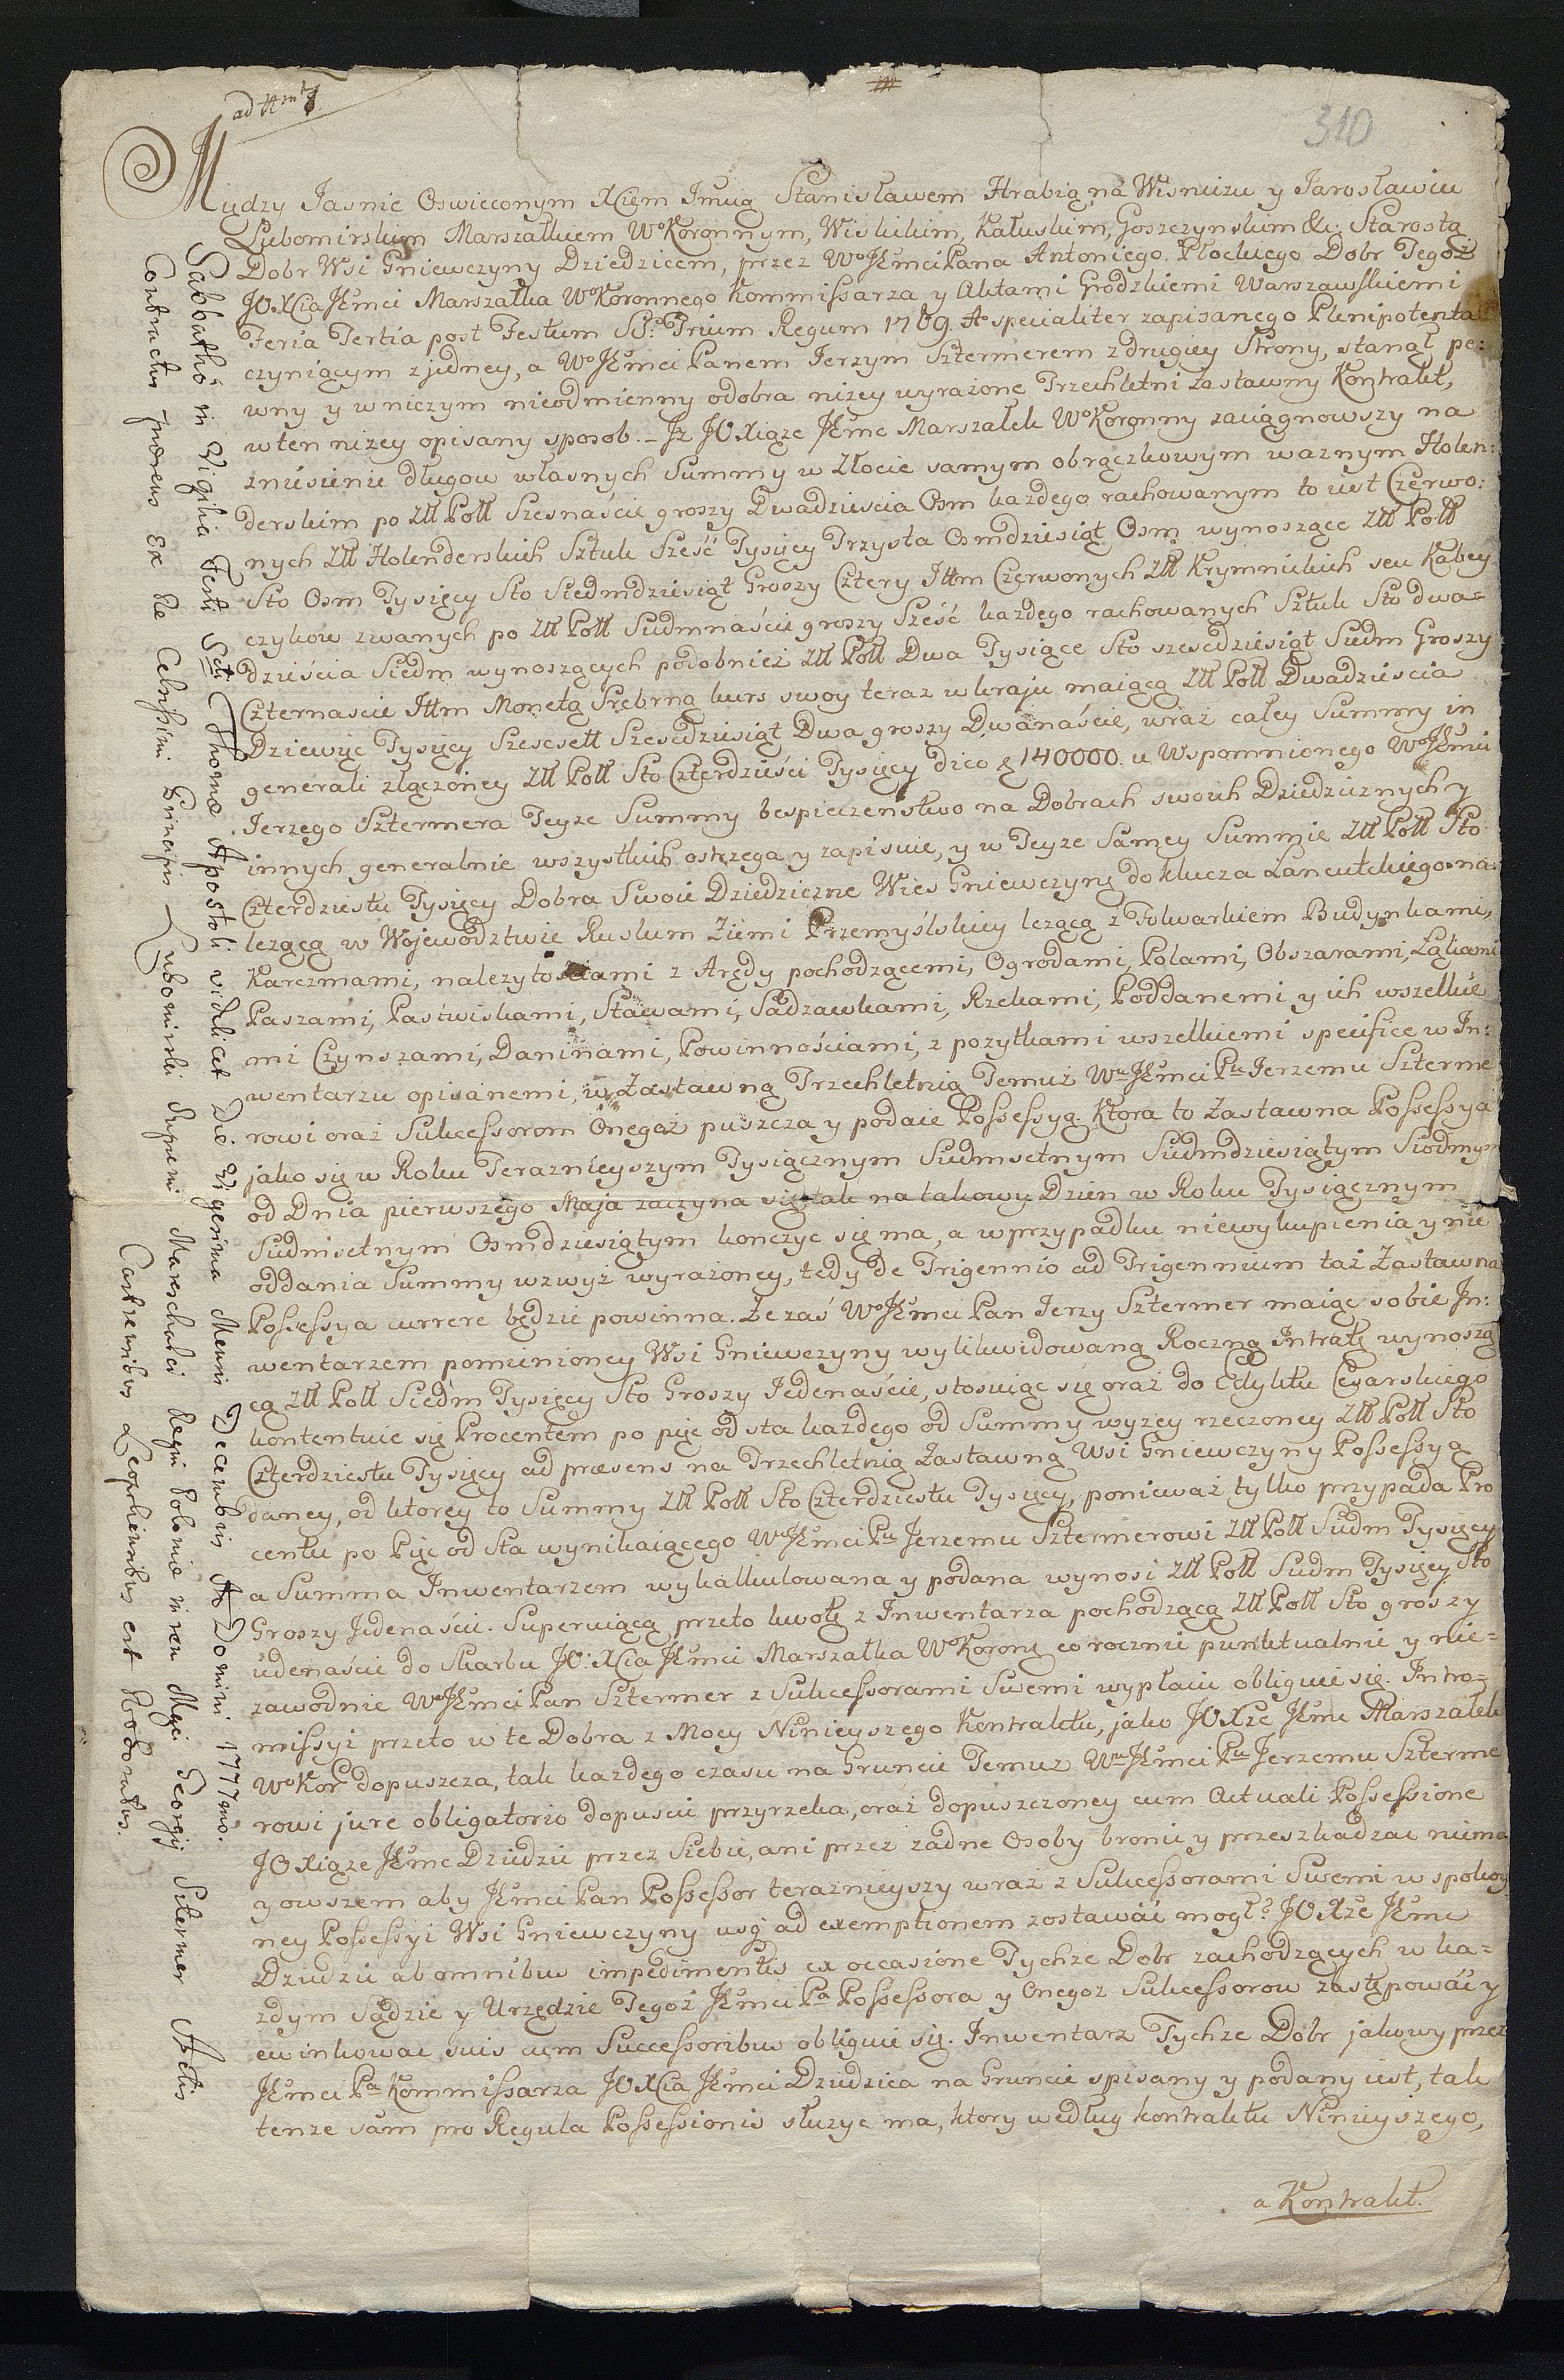 ad
310
Między Jasnie Oswieconym XCiem Jmcią Stanisławem Hrabią na Wisniczu y Jarosławiu
Lubomirskim Marszałkiem Wo Koronnym, Wislickim, Kałuskim, Goszczynskim &c. Starostą
Dobr Wsi Gniewczyny Dziedzicem, przez Wo JEmci Pana Antoniego Płockiego Dobr Tegoż
JO. XCia JEmci Marszałka Wo Koronnego Kommissarza y Aktami Grodzkiemi Warszawskiemi
Feria Tertia post Festum SS. Trium Regum 1769. Ao specialiter zapisanego Plenipotenta
czyniącym z jedney, a Wo JEmci Panem Jerzym Sztermerem z drugiey Strony, stanął pe:
wny y w niczym nieodmienny odobra nizey wyrażone Trzechletni Zastawny Kontrakt,
w ten nizey opisany sposob. – Jż JO Xiąze JEmc Marszałek Wo Koronny zaciągnowszy na
zniesienie długow własnych Summy w Złocie samym obrączkowym waznym Holen:
derskim po Złł Poll Szesnaście groszy Dwadziescia Osm kazdego rachowanym to iest Czerwo:
nych Złł Holenderskich Sztuk Sześć Tysięcy Trzysta Osmdziesiąt Osm wynoszące Złł Poll
Sto Osm Tysięcy Sto Siedmdziesiąt Groszy Cztery Jttm Czerwonych Złł Krymnickich seu Kabey
czykow zwanych po Złł Poll Siedmnaście groszy Sześć kazdego rachowanych Sztuk Sto dwa=
dzieścia Siedm wynoszących podobnież Złł Poll Dwa Tysiące Sto szescdziesiąt Siedm Groszy
Czternascie Jttm Monetą Srebrną kurs swoy teraz w kraju maiącą Złł Poll Dwadziescia
Dziewięc Tysięcy Szescsett Szescdziesiąt Dwa groszy Dwanaście, wraz całey Summy in
generali złączoney Złł Poll Sto Czterdzieści Tysięcy dico 140000. u Wspomnionego Wo JEmci
Jerzego Sztermera Teyze Summy bespieczeństwo na Dobrach swoich Dziedzicznych y
innych generalnie wszystkich ostrzega y zapisuie, y w Teyze Samey Summie Złł Poll Sto
Czterdziestu Tysięcy Dobra Swoie Dziedziczne Wies Gniewczynę do klucza Łancutckiego na:
lezącą w Wojewodztwie Ruskim Ziemi Przemyślskiey lezącą z Folwarkiem Budynkami,
Karczmami, nalezytosciami z Arędy pochodzącemi, Ogrodami, Polami, Obszarami, Łąkami
Paszami, Pastwiskami, Stawami, Sadzawkami, Rzekami, Poddanemi y ich wszelkie
mi Czynszami, Daninami, Powinnościami, z pozytkami wszelkiemi specifice w In:
wentarzu opisanemi, w Zastawną Trzechletnią Temuż Wu JEmci Pu Jerzemu Szterme
rowi oraz Sukcessorom Onegoż puszcza y podaie Possessyą. Ktora to Zastawna Possessya
jako się w Roku Teraznieyszym Tysiącznym Siedmsetnym Siedmdziesiątym Siodmym
od Dnia pierwszego Maja zaczyna się tak na takowy Dzien w Roku Tysiącznym
Siedmsetnym Osmdziesiątym konczyc się ma, a w przypadku niewykupienia y nie
oddania Summy wzwyż wyrażoney, tedy de Trigennio ad Trigennium taż Zastawna
Possessya currere będzie powinna. Że zaś Wo JEmci Pan Jerzy Sztermer maiąc sobie In:
wentarzem pomienioney Wsi Gniewczyny wylikwidowaną Roczną Intratę wynoszą
cą Złł Poll Siedm Tysięcy Sto Groszy Jedenaście, stosuiąc się oraz do Edyktu Cesarskiego
kontentuie się Procentem po pięc od sta kazdego od Summy wyzey rzeczoney Złł Poll Sto
Czterdziestu Tysięcy ad præsens na Trzechletnią Zastawną Wsi Gniewczyny Possessyą
daney, od ktorey to Summy Złł Poll Sto Czterdziestu Tysięcy, ponieważ tylko przypada Pro
centu po Pięc od Sta wynikaiącego Wu JEmci Pu Jerzemu Sztermerowi Złł Poll Siedm Tysięcy
a Summa Inwentarzem wykalkulowana y podana wynosi Złł Poll Siedm Tysięcy Sto
Groszy Jedenaście. Superuiącą przeto kwotę z Inwentarza pochodzącą Złł Poll Sto groszy
iedenaście do Skarbu JO: XCia JEmci Marszałka Wo Koronę co rocznie punktualnie y nie=
zawodnie Wo JEmci Pan Sztermer z Sukcessorami Swemi wypłacic obliguie się. Intro=
missyi przeto w te Dobra z Mocy Ninieyszego Kontraktu, jako JO Xże JEmc Marszałek
Wo Kor dopuszcza, tak kazdego czasu na Gruncie Temuz Wu JEmci Pu Jerzemu Szterme
rowi jure obligatorio dopuscic przyrzeka, oraz dopuszczoney cum Actuali Possessione
JO Xiąze JEmc Dziedzic przez Siebie, ani przez zadne Osoby bronic y przeszkadzac niema
y owszem aby JEmci Pan Possessor teraznieyszy wraz z Sukcessorami Swemi w spokoy
ney Possessyi Wsi Gniewczyny usq ad exemptionem zostawać mogł. JO Xże JEmc
Dziedzic ab omnibus impedimentis ex occasione Tychze Dobr zachodzących w ka=
zdym Sądzie y Urzędzie Tegoż JEmci Pa Possessora y Onegoz Sukcessorow zastępowáć y
ewinkowac suis cum Successoribus obliguie się. Inwentarz Tychze Dobr jakowy przez
JEmci Pa Kommissarza JO XCia JEmci Dziedzica na Gruncie spisany y podany iest, tak
tenze sam pro Regula Possessionis służyc ma, ktory według kontraktu Ninieyszego,
a Kontrakt.
Sabbatho in Vigilia Festi Scti Thomæ Apostoli videlicet Die Vigesima Mensis Decembris Ao Domini 1777mo.
Contractus præsens ex Re Celsissimi Principis Lubomirski Supremi Mareschalci Regni Poloniæ in rem Mgci Georgij Sztermer Actis
Castrensibus Leopoliensibus est Roboratus.